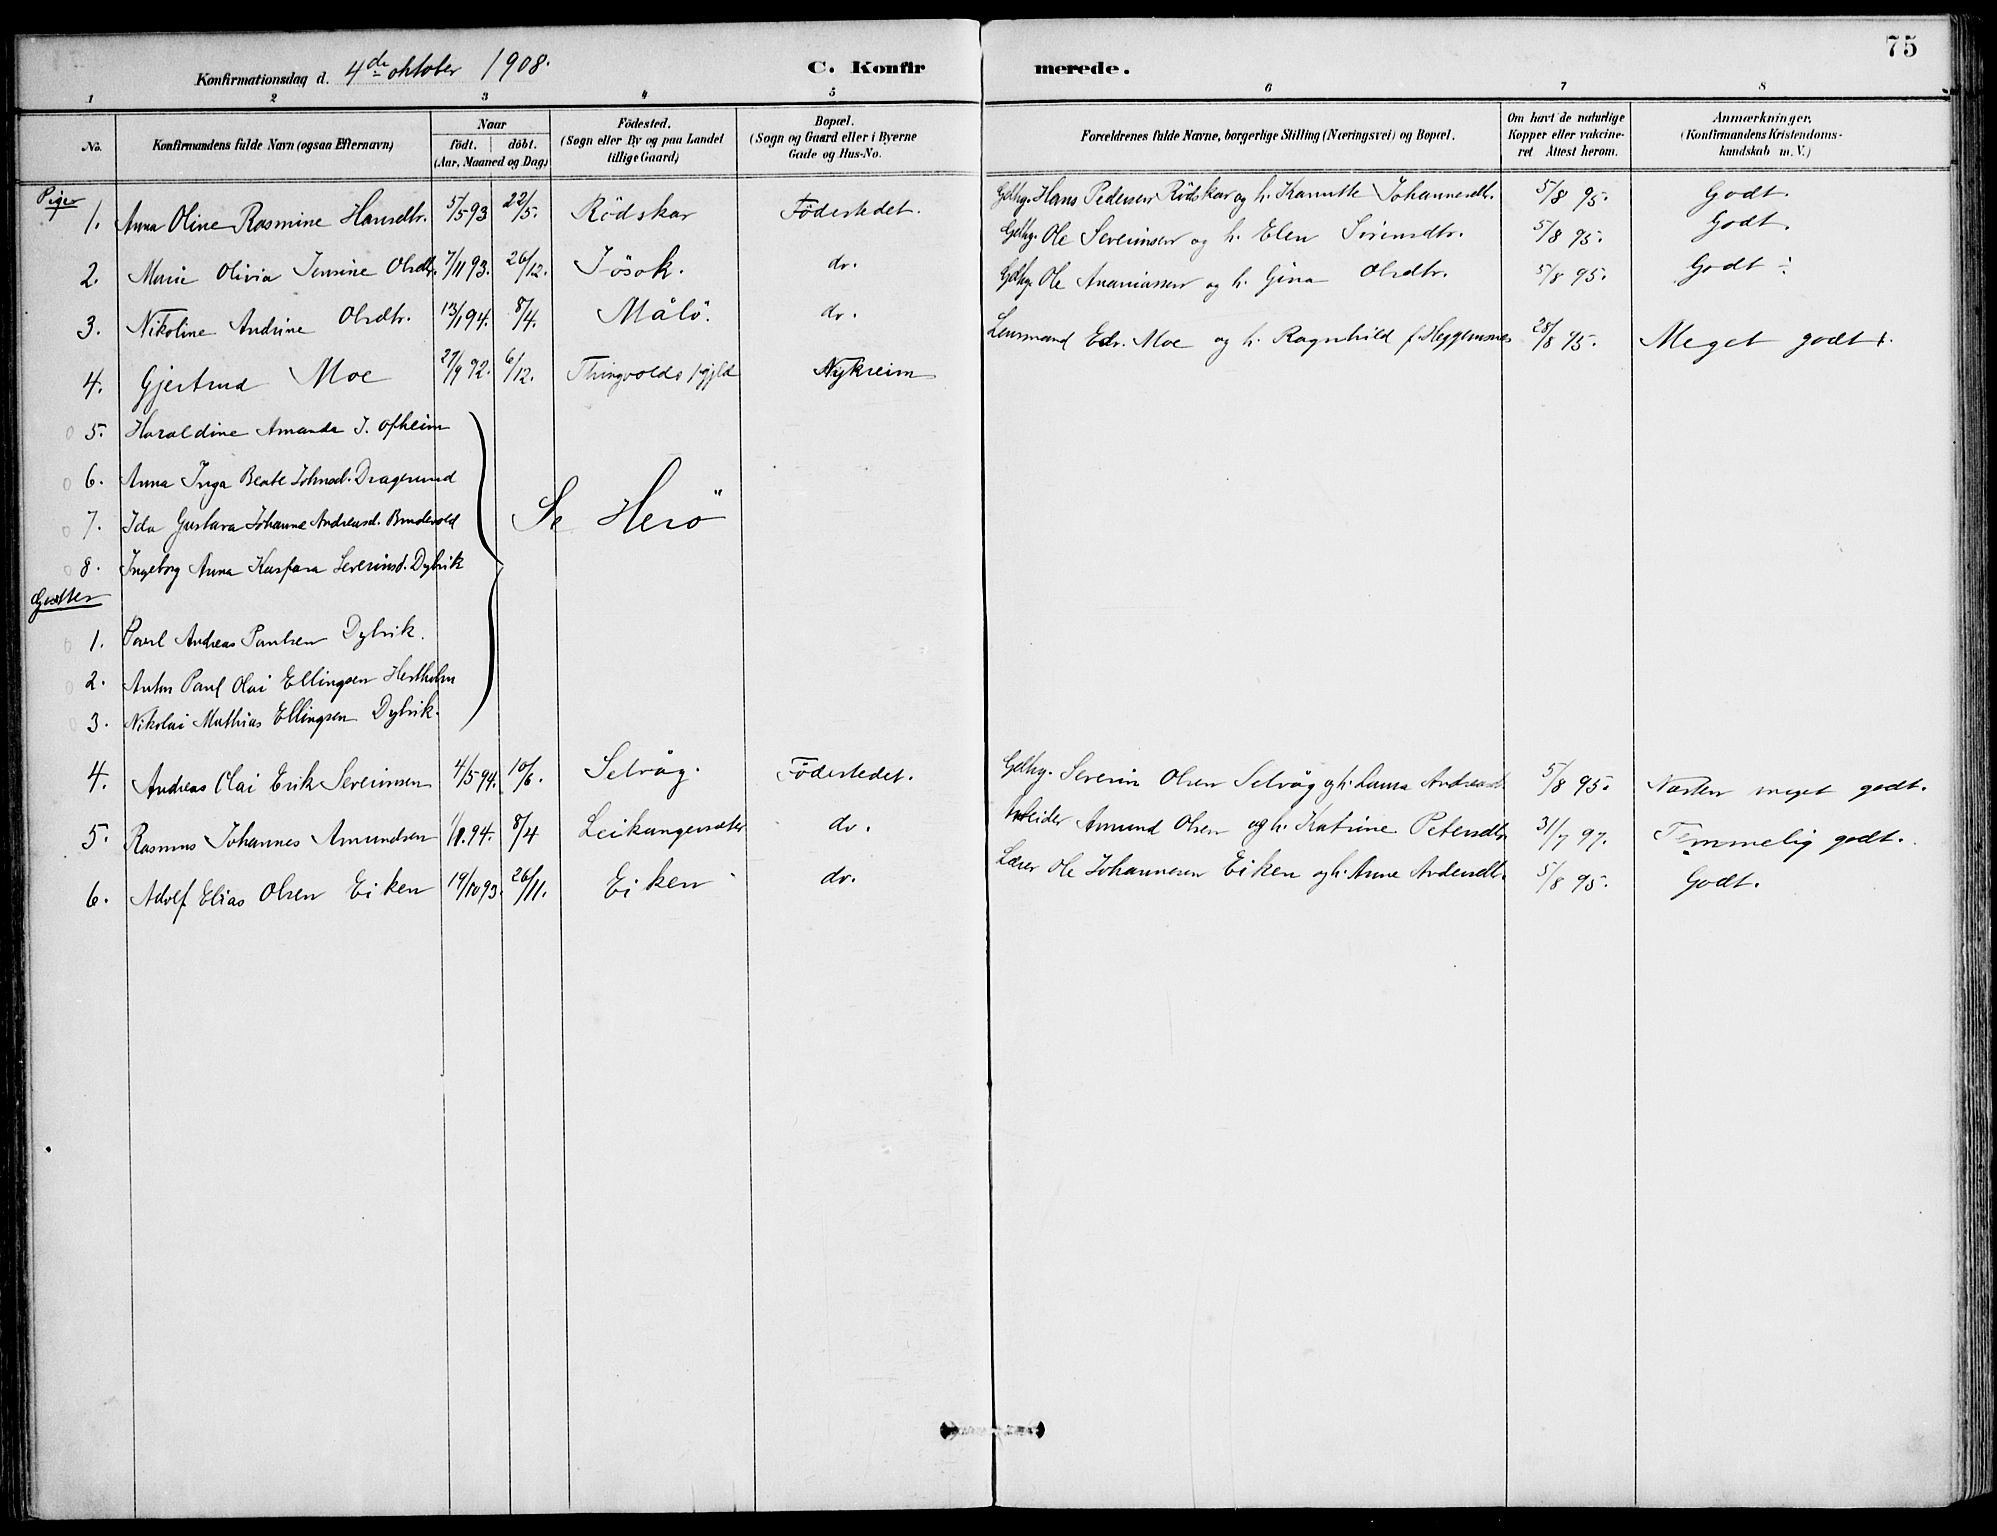 75
Konfirmationsdag d. 4de oktober 1908.
C. Konfirmerede.
1 2 3 4 5 6 7 8
No. Konfirmandens fulde Navn (ogsaa Efternavn) Naar födt. döbt. (Aar, Maaned og Dag) Födested. (Sogn eller By og paa Landet tillige Gaard) Bopæl. (Sogn og Gaard eller i Byerne Gade og Hus-No. Forældrenes fulde Navne, borgerlige Stilling (Næringsvei) og Bopæl. Om havt de naturlige Kopper eller vakcineret Attest herom. Anmærkninger, (Konfirmandens Kristendomskundskab m. V.)
Piger
1. Anna Oline Rasmine Hansdtr. 5/5 93 22/5. Rödskar Födestedet. Gdbg. Hans Pedersen Rödskar og h. Johannesdtr. 5/8 95. Godt.
2. Marie Olivia Jensine Olsdtr. 7/11 93. 26/12. Jösok. do. Gdbg. Ole Severinsen og h. Elen Sörensdtr. 5/8 95. Godt.
3. Nikoline Andrine Olsdtr. 13/1 94. 8/4. Målö. do. Gdbg. Ole Ananiassen og h. Gina Olsdtr. 5/8 95. Godt ÷
4. Gjertrud Moe 27/9 92. 6/12. Thingvolds pgjld Nykreim Lensmand Edv. Moe og h. Ragnhild f. Heggemsnes 28/8 95. Meget godt +.
5. Haraldine Amanda J. Opheim
6. Anna Inga Beate Johnsd. Dragesund
7. Ida Gustava Johanne Andreasd. Bondevold
8. Ingeborg Anna Kaspara Severinsd. Dybvik
Se Herö
Gutter
1. Povel Andreas Paulsen Dybvik.
2. Anton Paul Olai Ellingsen Hestholm
3. Nikolai Mathias Ellingsen Dybvik.
4. Andreas Olai Erik Severinsen 4/5 94. 10/6. Selvåg. Födestedet. Gdbg. Severin Olsen Selvåg og h. Laura Andreasd. 5/8 95. Næsten meget godt.
5. Rasmus Johannes Amundsen 94. 8/4 Leikangersæter do. Arbeider Amund Olsen og h. Katrine Petersdtr 31/7 97. Temmelig godt.
6. Adolf Elias Olsen Eiken 14/10 93. 26/11. Eiken do. Lærer Ole Johannesen Eiken og h. Anne 5/8 95. Godt.